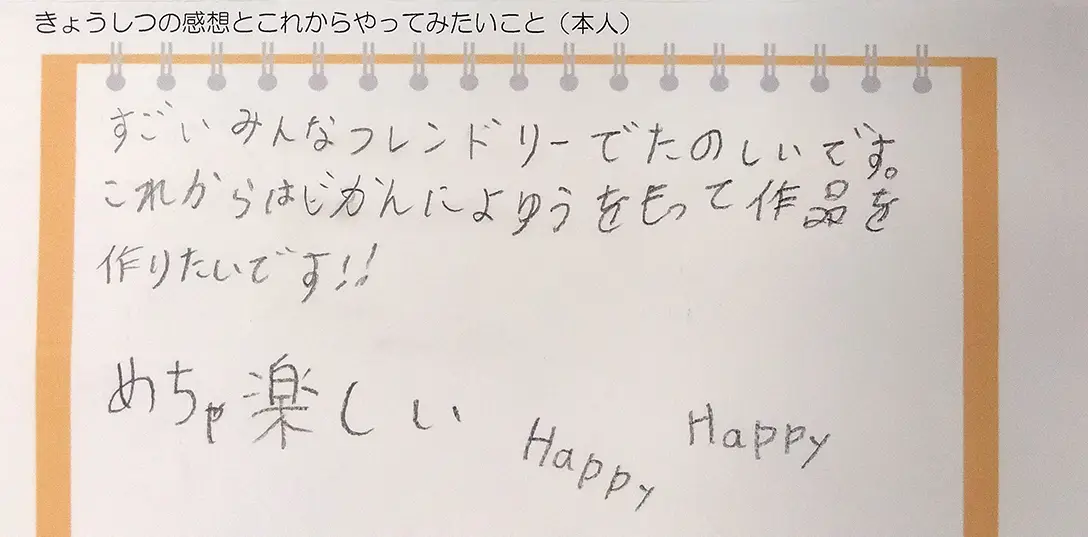 きょうしつの感想とこれからやってみたいこと（本人）
すごいみんなフレンドリーでたのしいです。
これからはじかんによゆうをもって作品を
作りたいです!!
めちゃ楽しい Happy Happy